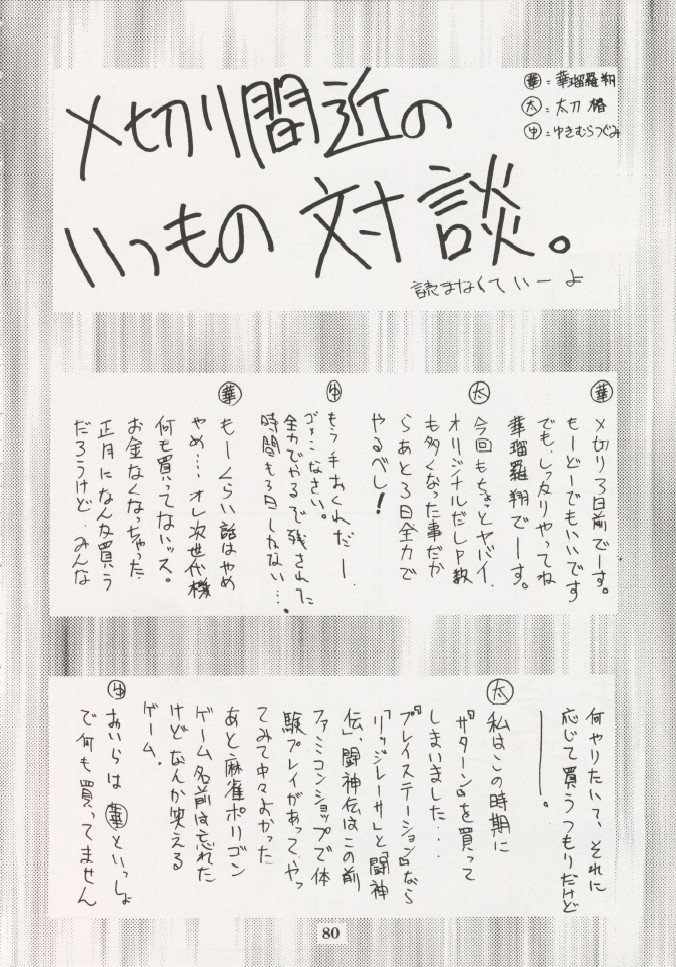 〆切り間近の
いつもの対談。
読まなくていーよ
華:華瑠羅翔
太:太刀 椿
ゆ:ゆきむらつぐみ
華 〆切り3日前でーす。
もーどーでもいいです
でも、しっかりやってね
華瑠羅翔でーす。
太 今回もちょっとヤバイ、
オリジナルだしP数
も多くなった事だか
らあと3日全力で
やるべし!
ゆ もう手おくれだー、
ゴメンなさい。
全力でやるで残された
時間も3日しかない…。
華 もーくらい話はやめ
やめ…オレ次世代機
何も買ってないッス。
お金なくなっちゃった
正月になんか買う
だろうけど、みんな
何やりたいて、それに
応じて買うつもりだけど
――。
太 私はこの時期に
『サターン』を買って
しまいました…
『プレイステーション』なら
「リッジレーサー」と「闘神
伝」、闘神伝はこの前
ファミコンショップで体
験プレイがあって、やっ
てみて中々よかった
あと麻雀ポリゴン
ゲーム名前は忘れた
けどなんか笑える
ゲーム.
ゆ おいらは華といっしょ
で何も買ってません
80